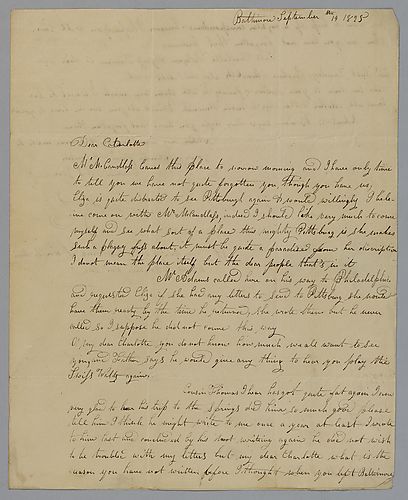 Baltimore September 14 1825
Dear Charlotte
Mr McCandless leaves this place to morrow morning and I have only time
to tell you we have not quite forgotten you, though you have us,
Eliza is quite distracted to see Pittsburgh again & would willingly I
me come on with Mr McCandless, indeed I should like very much to come
myself and see what sort of a place this mighty Pittsburg is she makes
such a plaguy fuss about it must be quite a paradise from her discription
I do not mean the place itself but the dear people that's in it
Mr Adams called here on his way to Philadelphia
and requested Eliza if she had any letters to send to Pittsburg she would
have them ready by the time he returned, she wrote them but he never
called so I suppose he did not come this way
O, my dear Charlotte you do not know how much we all want to see
you, and Father says he would give any thing to hear you play the
Swiss Waltz again.
Cousin Thomas I hear has got quite fat again I am
very glad to hear his trip to the Springs did him so much good please
tell him I think he might write to me once a year at least I wrote
to him last and concluded by his not writing again he did not wish
to be troubled with my letters but my dear Charlotte what is the
reason you have not written before I thought when you left Baltimore